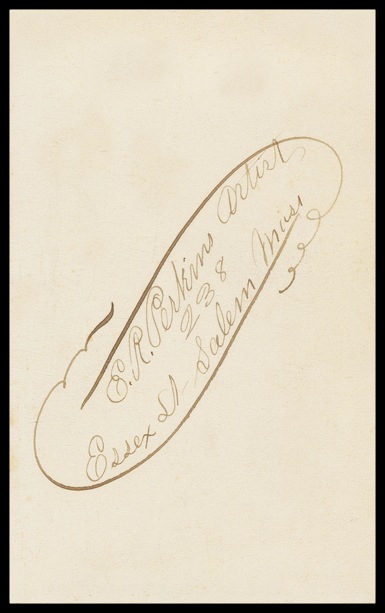 E. R. Perkins Artist
238
Essex St Salem Mass